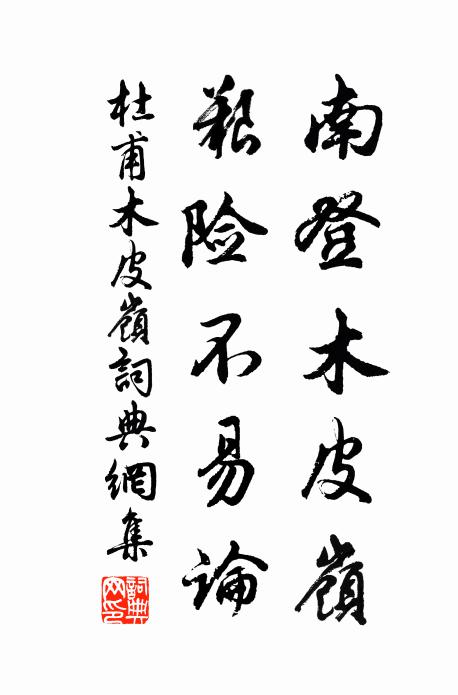 南登木皮嶺
艱险不易論
杜甫木皮嶺詞典網集
詞典网印